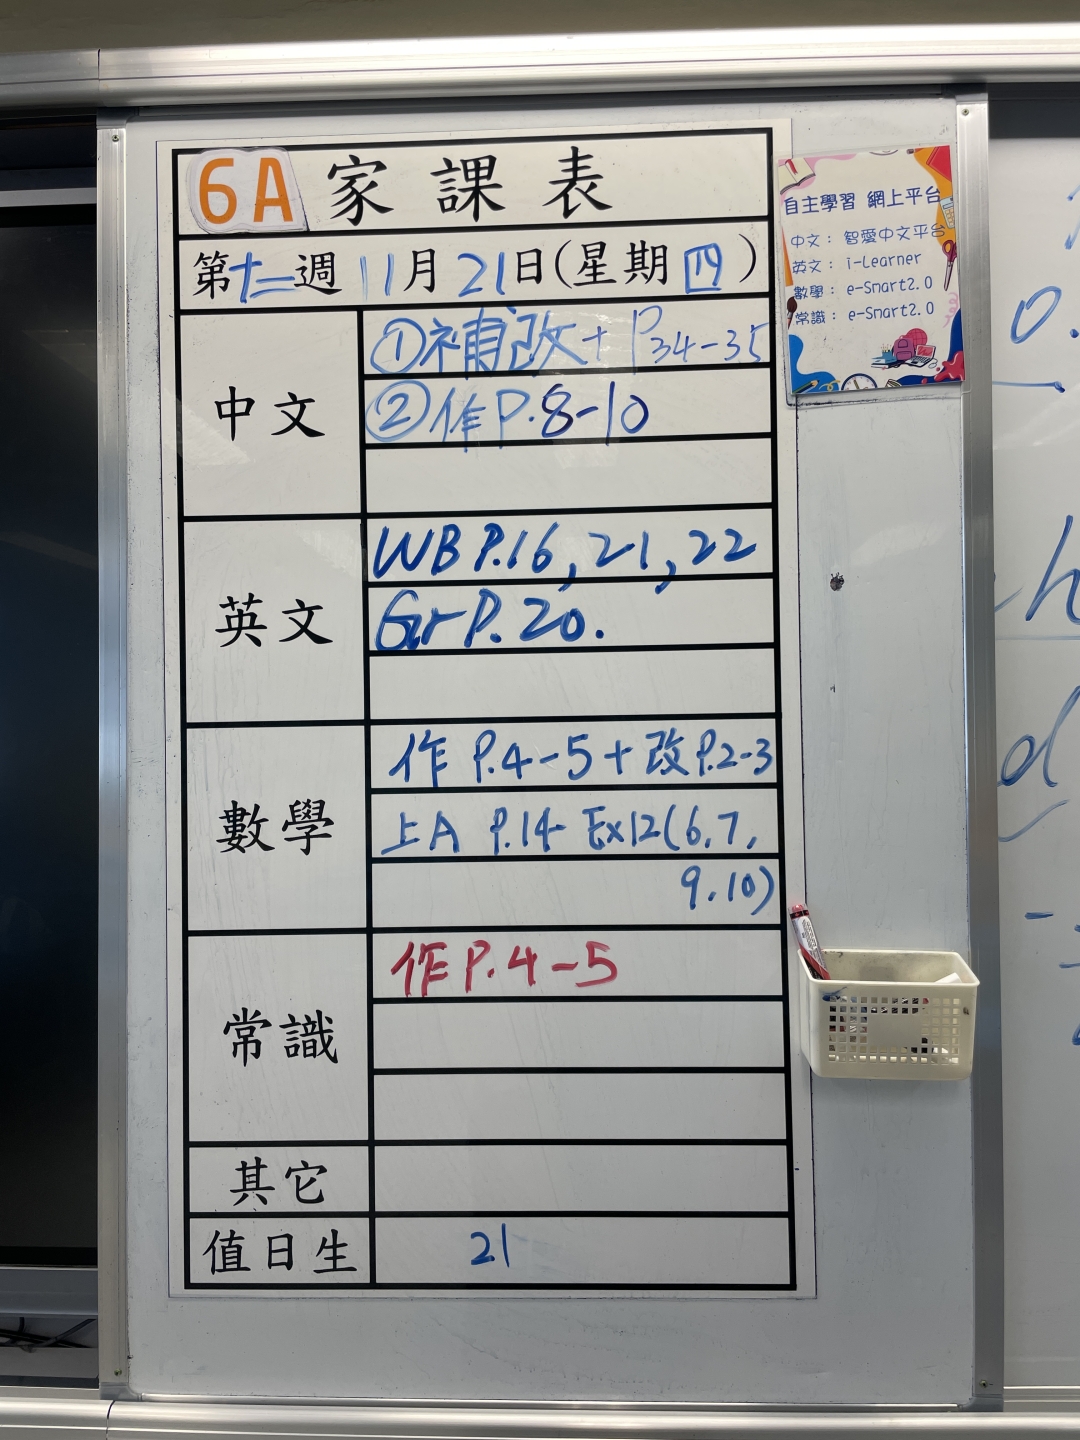 6A 家課表
第十二週 11月21日(星期四)
中文
①補改+P34-35
②作P.8-10
英文
WB P.16, 21, 22
Gr P. 20.
數學
作 P.4-5+改P.2-3
上A P.14 Ex12(6,7,
9,10)
常識
作P.4-5
其它
值日生
21
自主學習 網上平台
中文: 智愛中文平台
英文: i-Learner
數學: e-Smart2.0
常識: e-Smart2.0
0.
h
d